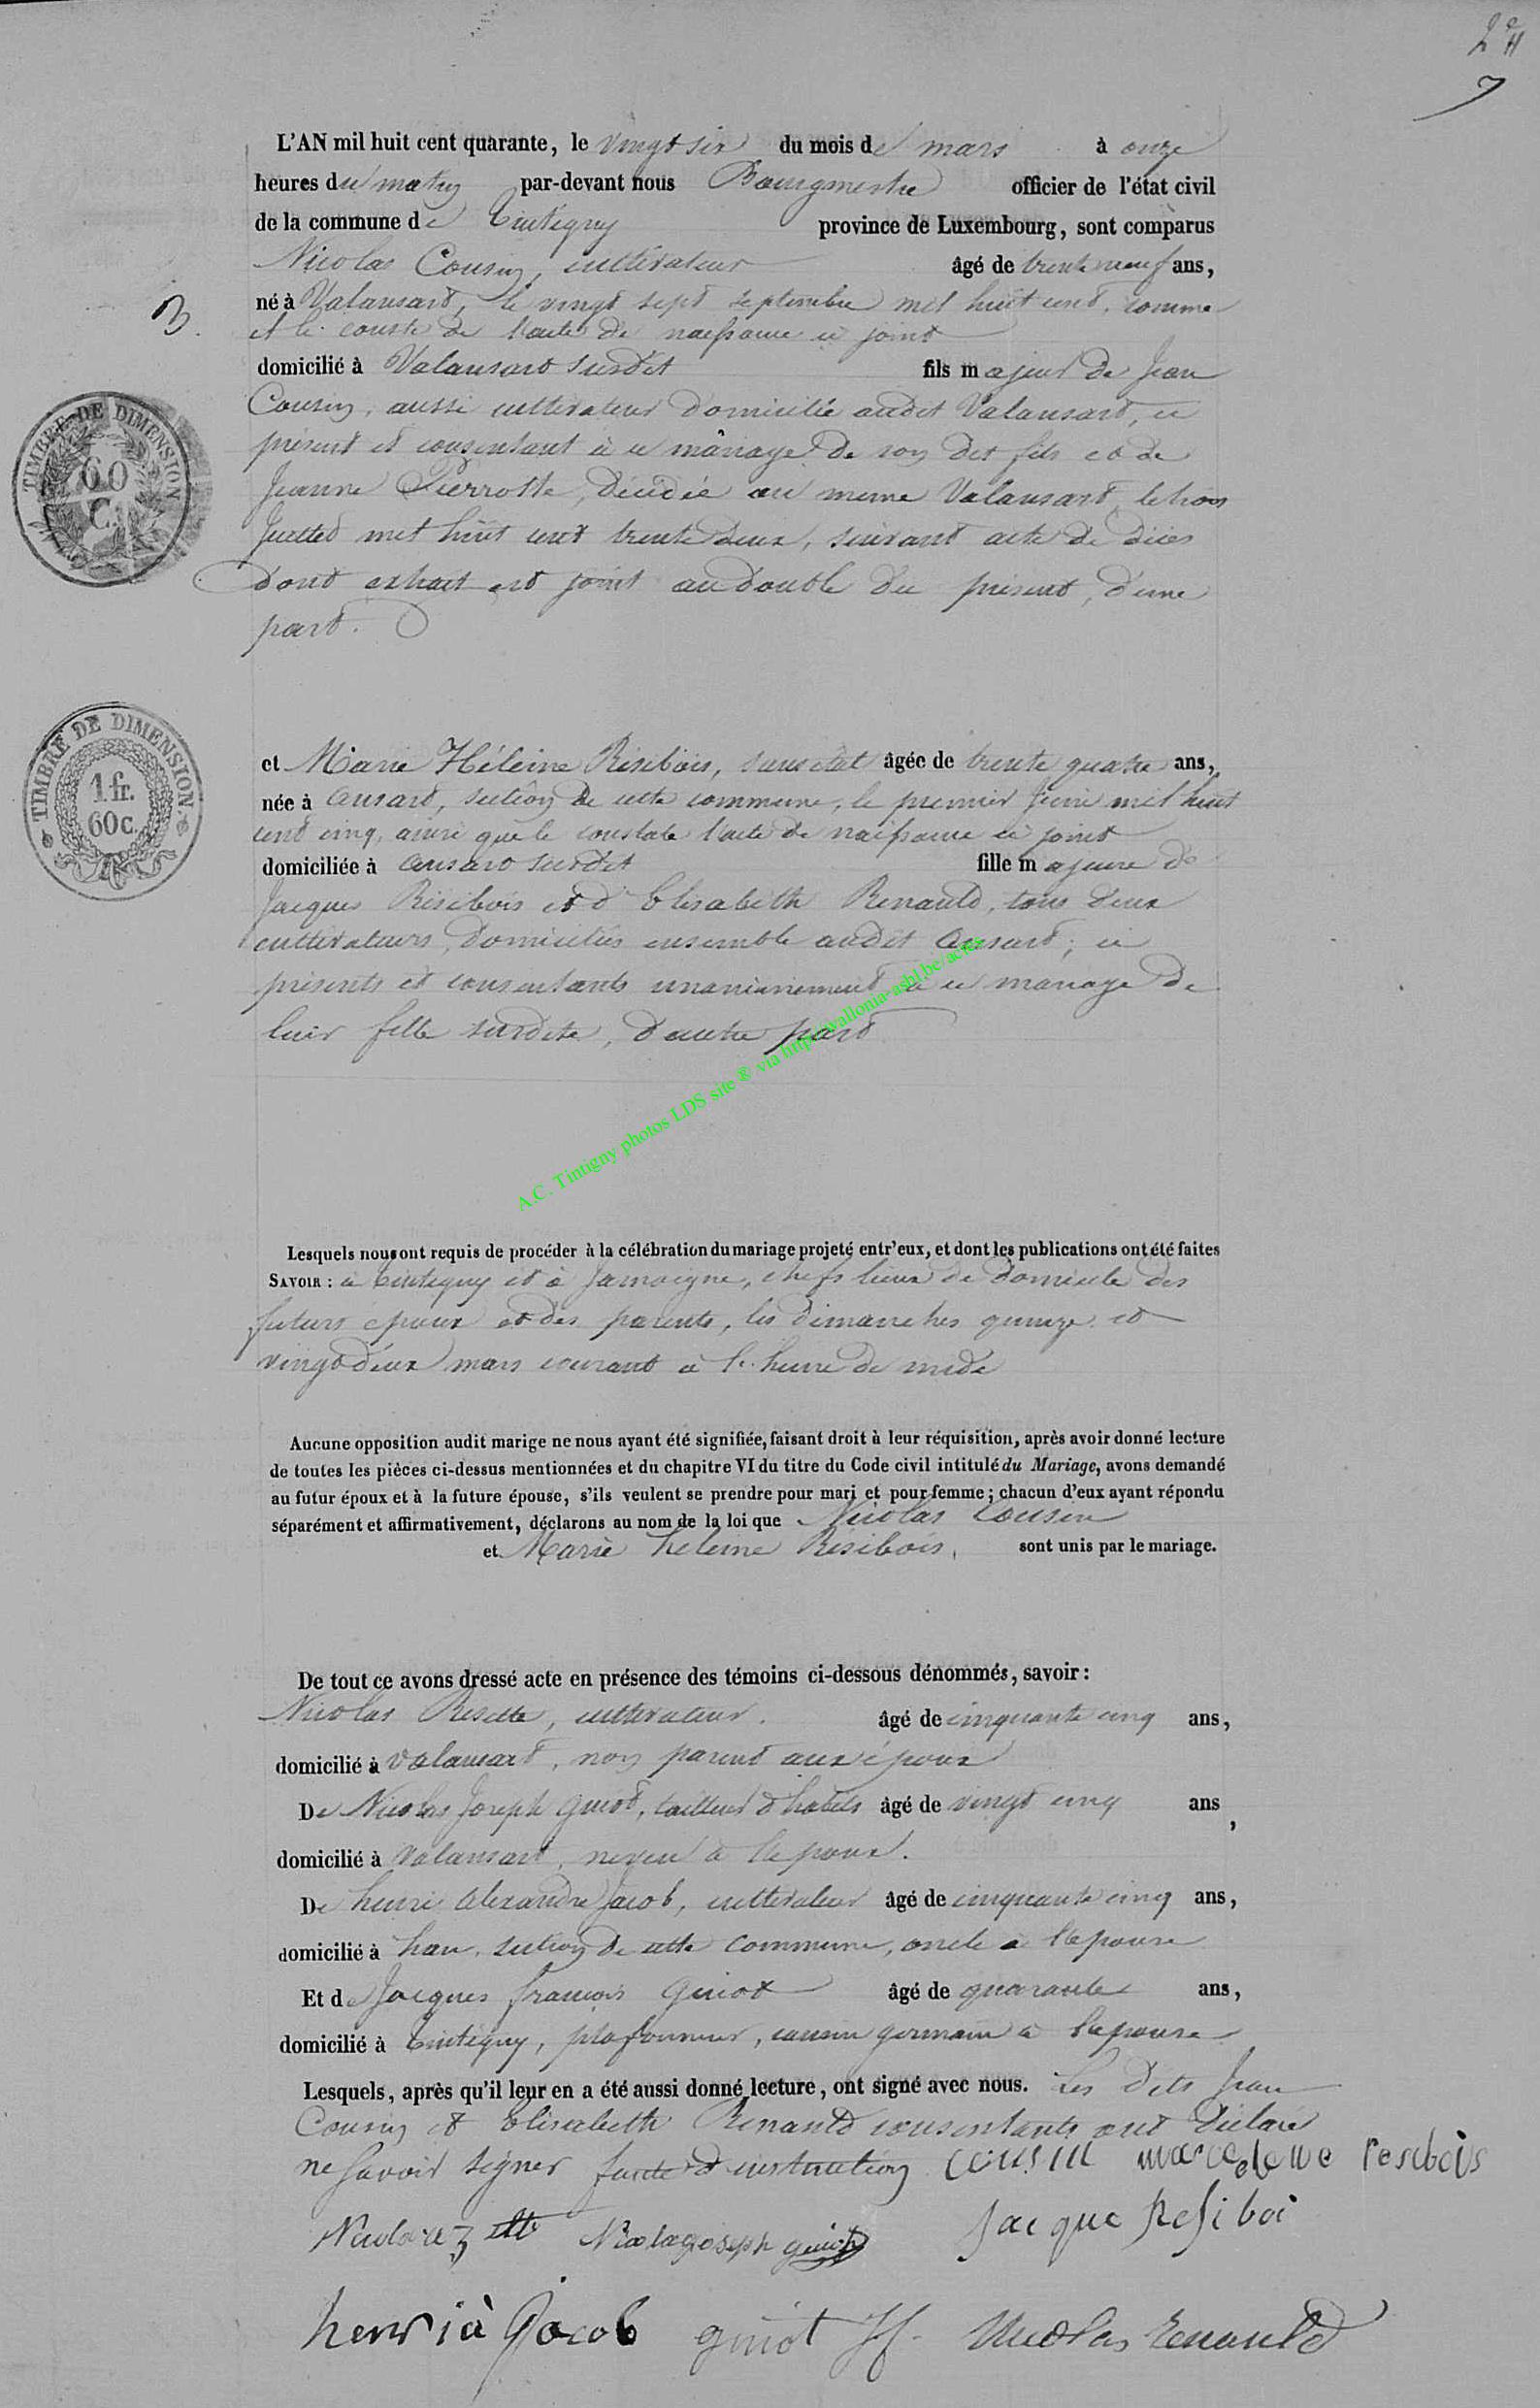 2e H
7
L'AN mil huit cent quarante, le vingt six du mois de mars à onze
heures du matin par-devant nous Bourgmestre officier de l'état civil
de la commune de Tintigny province de Luxembourg, sont comparus
Nicolas Cousin, cultivateur âgé de trente neuf ans,
né à Valansart, le vingt sept septembre mil huit cent, comme
B.
et le conste de l'acte de naissance ci joint
domicilié à Valansart susdit fils majeur de Jean
Cousin, aussi cultivateur domicilié audit Valansart, ci
présent et consentant à ce mariage de son dit fils et de
Jeanne Pierrotte, décédée au meme Valansart, le trois
Juillet mil huit cent trente deux, suivant acte de décès
dont extrait est joint au double du présent, d'une
part.
TIMBRE DE DIMENSION
60
C.
et Marie Héleine Résibois, sans état âgée de trente quatre ans,
née à Ansart, section de cette commune, le premier Juin mil huit
cent cinq, ainsi que le constate l'acte de naissance ci joint
domiciliée à Ansart susdit fille majeure de
Jacques Résibois et d'Elisabeth Renauld, tous deux
cultivateurs, domiciliés ensemble audit Ansart; ci
présents et consentants unanimement à ce mariage de
leur fille susdite, d'autre part
TIMBRE DE DIMENSION
1 fr.
60 c.
A.C. Tintigny photos LDS site ® via http://wallonia-asbl.be/actes
Lesquels nous ont requis de procéder à la célébration du mariage projeté entr'eux, et dont les publications ont été faites
SAVOIR : à Tintigny et à Jamoigne, chefs lieux de domicile des
futurs époux et des parents, les dimanches quinze et
vingt deux mars courant à l'heure de midi
Aucune opposition audit marige ne nous ayant été signifiée, faisant droit à leur réquisition, après avoir donné lecture
de toutes les pièces ci-dessus mentionnées et du chapitre VI du titre du Code civil intitulé du Mariage, avons demandé
au futur époux et à la future épouse, s'ils veulent se prendre pour mari et pour femme ; chacun d'eux ayant répondu
séparément et affirmativement, déclarons au nom de la loi que Nicolas Cousin
et Marie heleine Résibois, sont unis par le mariage.
De tout ce avons dressé acte en présence des témoins ci-dessous dénommés, savoir :
Nicolas Resette, cultivateur. âgé de cinquante cinq ans,
domicilié à Valansart, non parent aux époux
De Nicolas Joseph Guiot, tailleur d'habits âgé de vingt cinq ans,
domicilié à Valansart, neveu à l'époux.
De henri Alexandre Jacob, cultivateur âgé de cinquante cinq ans,
domicilié à han, section de cette commune, oncle à l'épouse
Et de Jacques francois Guiot âgé de quarante ans,
domicilié à Tintigny, plafonneur, cousin germain à l'épouse
Lesquels, après qu'il leur en a été aussi donné lecture, ont signé avec nous. Les dits Jean
Cousin et Elisabeth Renauld consentants ont déclaré
ne savoir signer faute d'instruction cousin marie elene resibois
Nicola rezette Nicolas joseph guiot Jacque Resiboi
henri à Jacob guiot JF. Nicolas Renauld